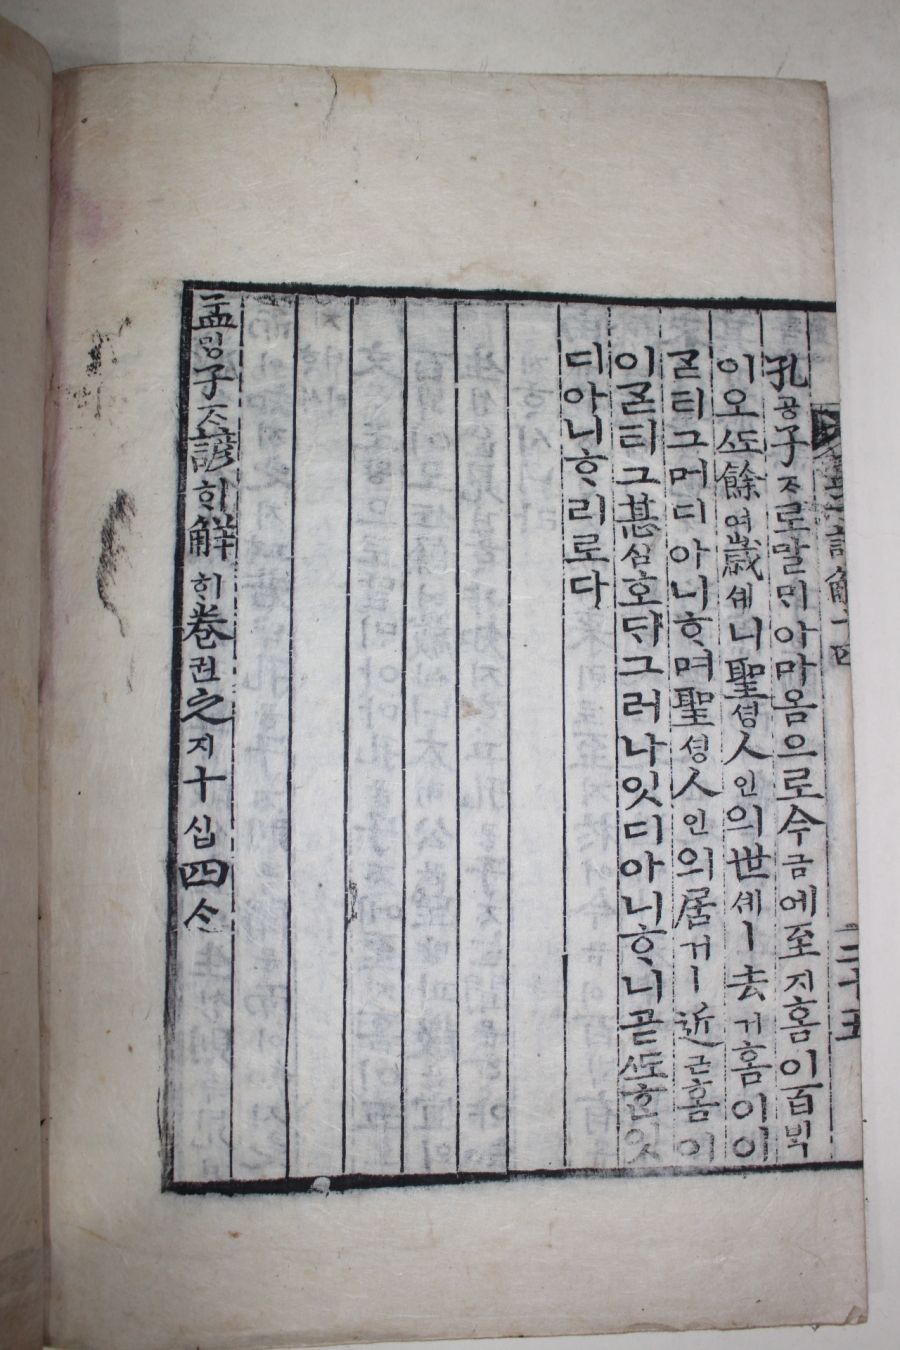 孟子諺解十四
二十五
孔공子ᄌᆞ로말ᄆᆡ아마옴으로今금에至지홈이百ᄇᆡᆨ
이오ᄯᅩ餘여歲셰니聖셩人인의世셰ㅣ去거홈이이
ᄀᆞᆮ티그머디아니ᄒᆞ며聖셩人인의居거ㅣ近근홈이
이ᄀᆞᆮ티그甚심호ᄃᆡ그러나잇디아니ᄒᆞ니곧ᄯᅩᄒᆞᆫ잇
디아니ᄒᆞ리로다
孟ᄆᆡᆼ子ᄌᆞ諺언解ᄒᆡ卷권之지十십四ᄉᆞ